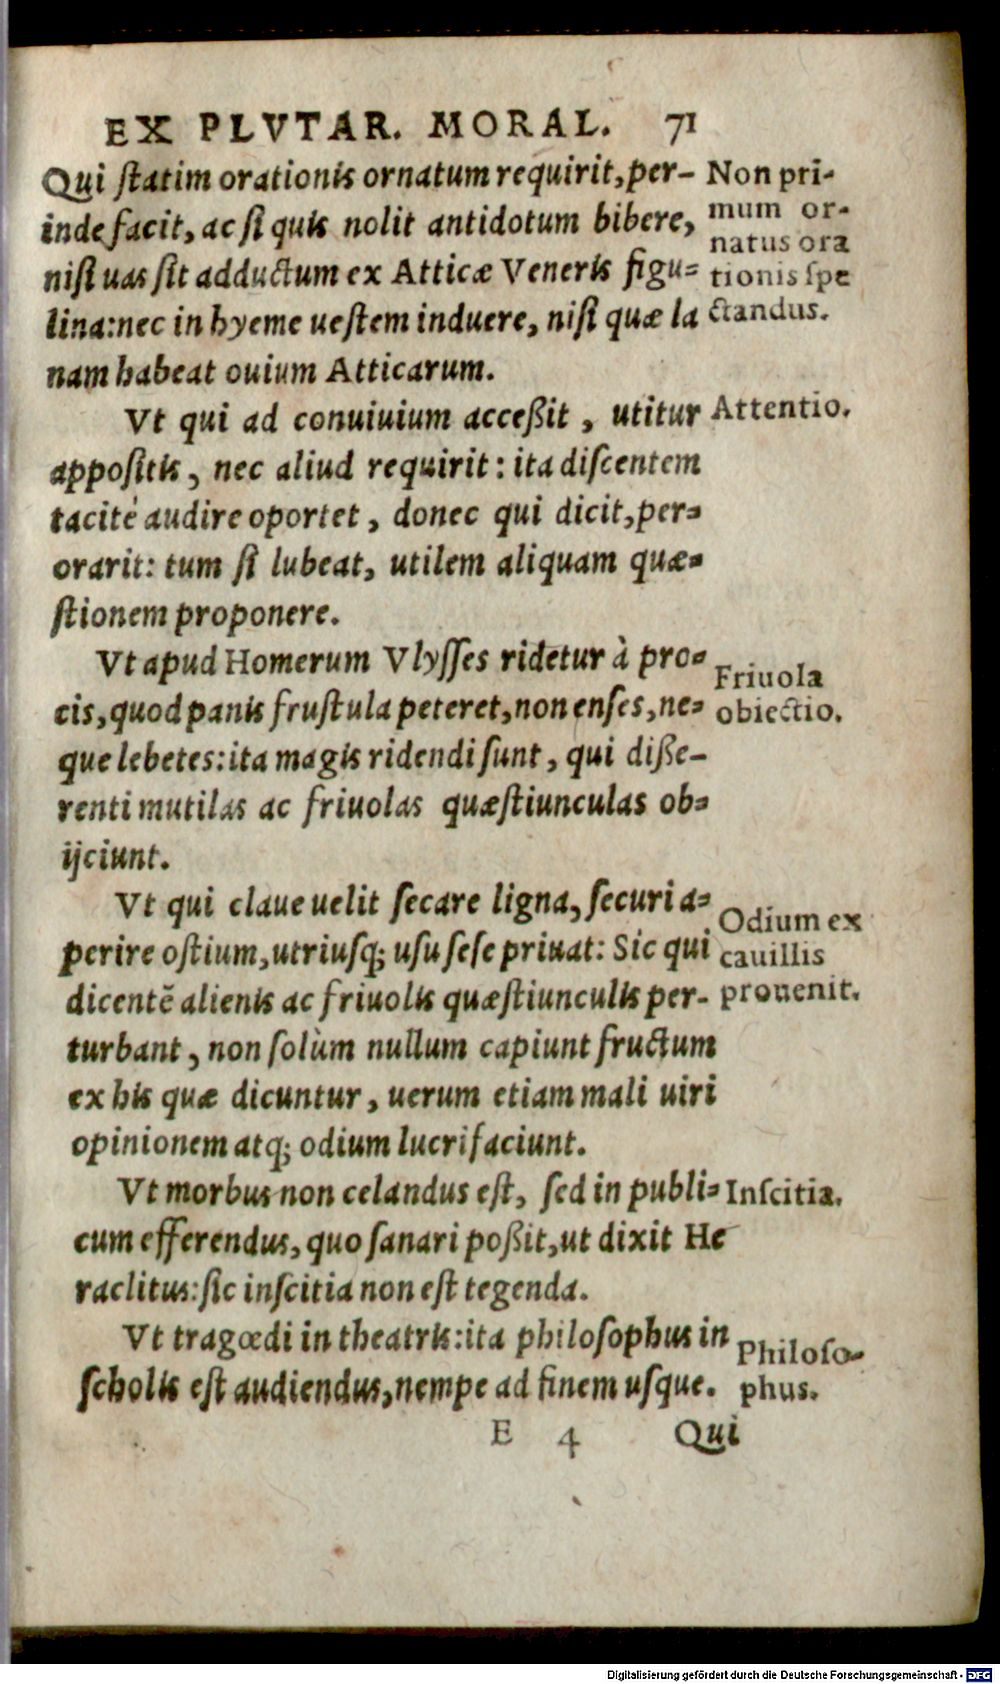 EX PLVTAR. MORAL. 71
Qui ſtatim orationis ornatum requirit, per-
inde facit, ac ſi quis nolit antidotum bibere,
niſi uas ſit adductum ex Atticæ Veneris figu-
lina: nec in hyeme ueſtem induere, niſi quæ la
nam habeat ouium Atticarum.
Non pri-
mum or-
natus ora
tionis ſpe
ctandus.
Vt qui ad conuiuium acceßit, utitur
appoſitis, nec aliud requirit: ita diſcentem
tacitè audire oportet, donec qui dicit, per-
orarit: tum ſi lubeat, utilem aliquam quæ-
ſtionem proponere.
Attentio.
Vt apud Homerum Vlyſſes ridetur à pro-
cis, quod panis fruſtula peteret, non enſes, ne-
que lebetes: ita magis ridendi ſunt, qui diße-
renti mutilas ac friuolas quæſtiunculas ob-
ijciunt.
Friuola
obiectio.
Vt qui claue uelit ſecare ligna, ſecuri a-
perire oſtium, utriusq; uſu ſeſe priuat: Sic qui
dicentē alienis ac friuolis quæſtiunculis per-
turbant, non ſolùm nullum capiunt fructum
ex his quæ dicuntur, uerum etiam mali uiri
opinionem atq; odium lucrifaciunt.
Odium ex
cauillis
prouenit.
Vt morbus non celandus eſt, ſed in publi-
cum efferendus, quo ſanari poßit, ut dixit He
raclitus: ſic inſcitia non eſt tegenda.
Inſcitia.
Vt tragœdi in theatris: ita philoſophus in
ſcholis eſt audiendus, nempe ad finem uſque.
Philoſo-
phus.
E 4 Qui
Digitalisierung gefördert durch die Deutsche Forschungsgemeinschaft - DFG